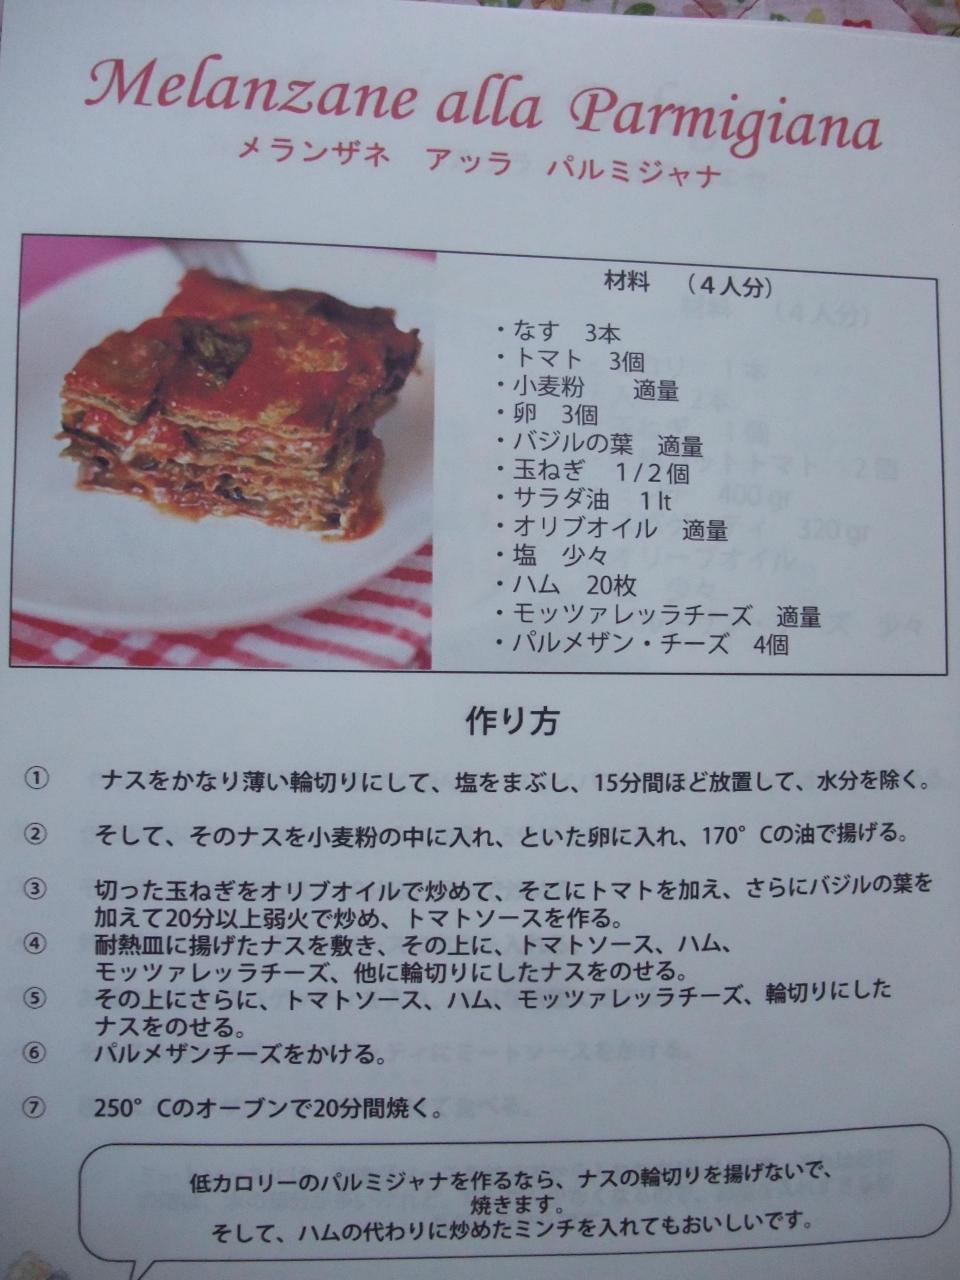 Melanzane alla Parmigiana
メランザネ　アッラ　パルミジャナ
材料　（４人分）
・なす　3本
・トマト　3個
・小麦粉　　適量
・卵　3個
・バジルの葉　適量
・玉ねぎ　1/2個
・サラダ油　1 lt
・オリブオイル　適量
・塩　少々
・ハム　20枚
・モッツァレッラチーズ　適量
・パルメザン・チーズ　4個
作り方
① ナスをかなり薄い輪切りにして、塩をまぶし、15分間ほど放置して、水分を除く。
② そして、そのナスを小麦粉の中に入れ、といた卵に入れ、170°Cの油で揚げる。
③ 切った玉ねぎをオリブオイルで炒めて、そこにトマトを加え、さらにバジルの葉を
加えて20分以上弱火で炒め、トマトソースを作る。
④ 耐熱皿に揚げたナスを敷き、その上に、トマトソース、ハム、
モッツァレッラチーズ、他に輪切りにしたナスをのせる。
⑤ その上にさらに、トマトソース、ハム、モッツァレッラチーズ、輪切りにした
ナスをのせる。
⑥ パルメザンチーズをかける。
⑦ 250°Cのオーブンで20分間焼く。
低カロリーのパルミジャナを作るなら、ナスの輪切りを揚げないで、
焼きます。
そして、ハムの代わりに炒めたミンチを入れてもおいしいです。